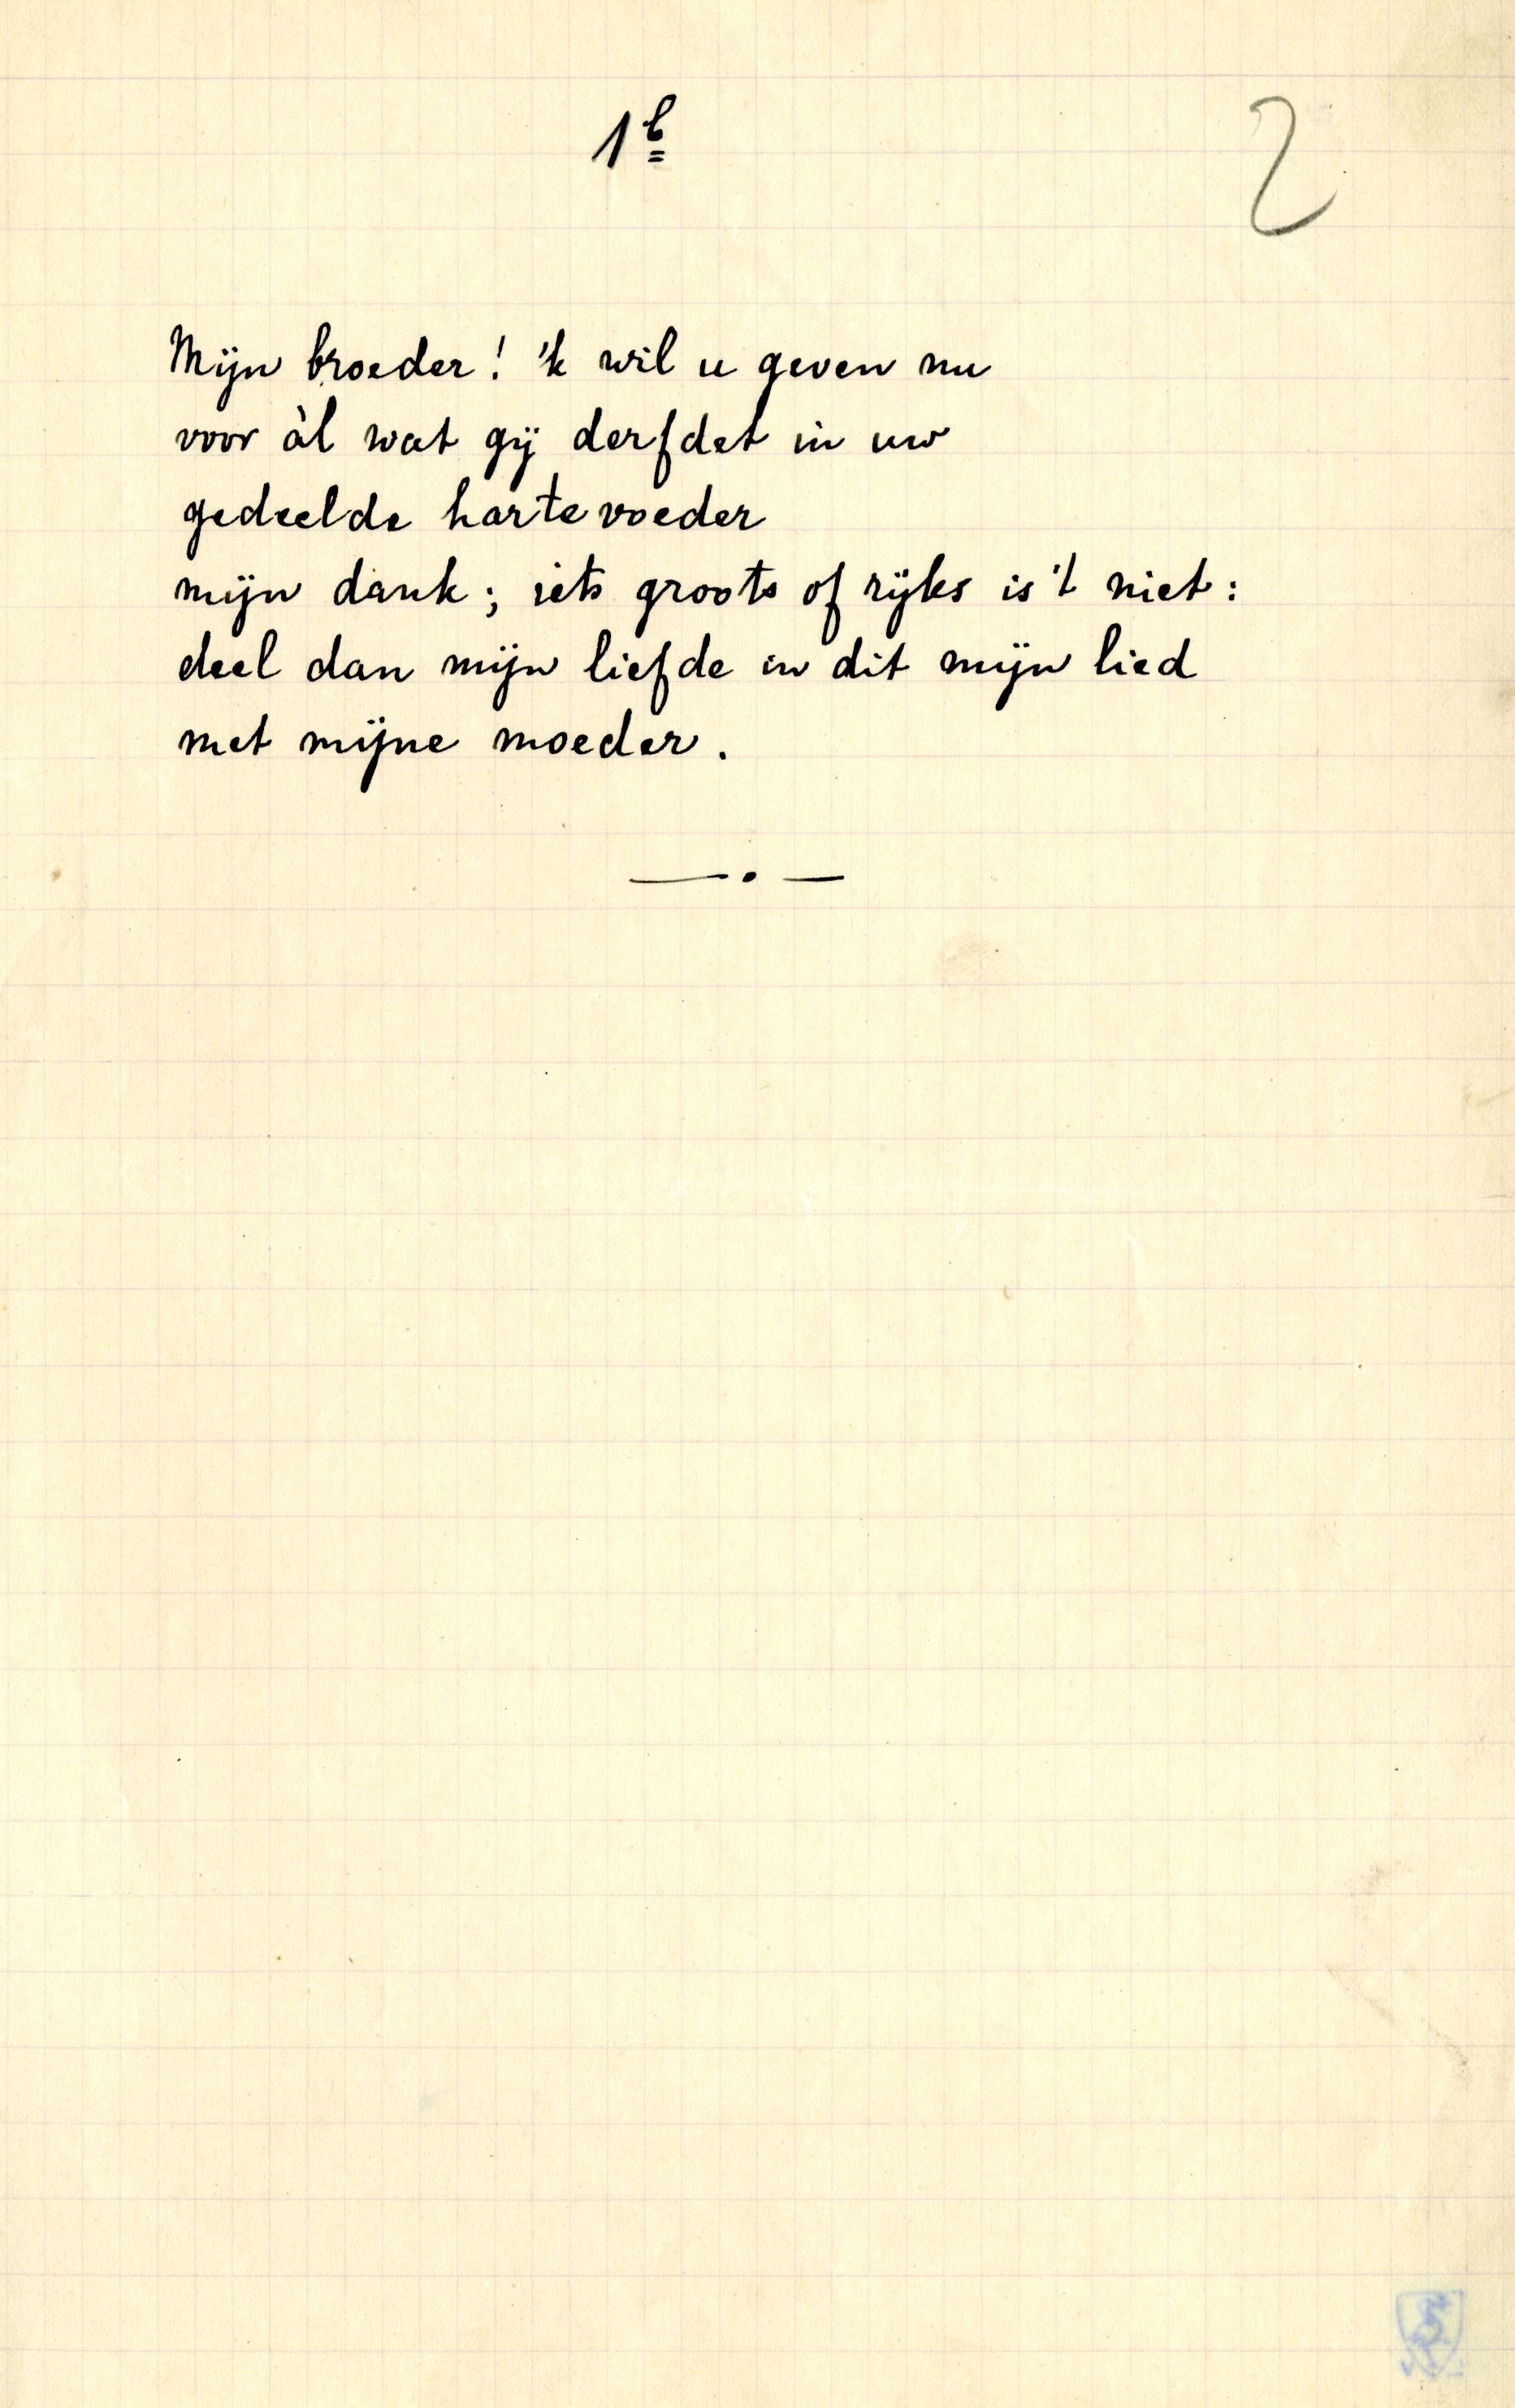 1b
2
Mijn broeder! 'k wil u geven nu
voor àl wat gij derfdet in uw
gedeelde hartevoeder
mijn dank; iets groots of rijks is 't niet:
deel dan mijn liefde in dit mijn lied
met mijne moeder.